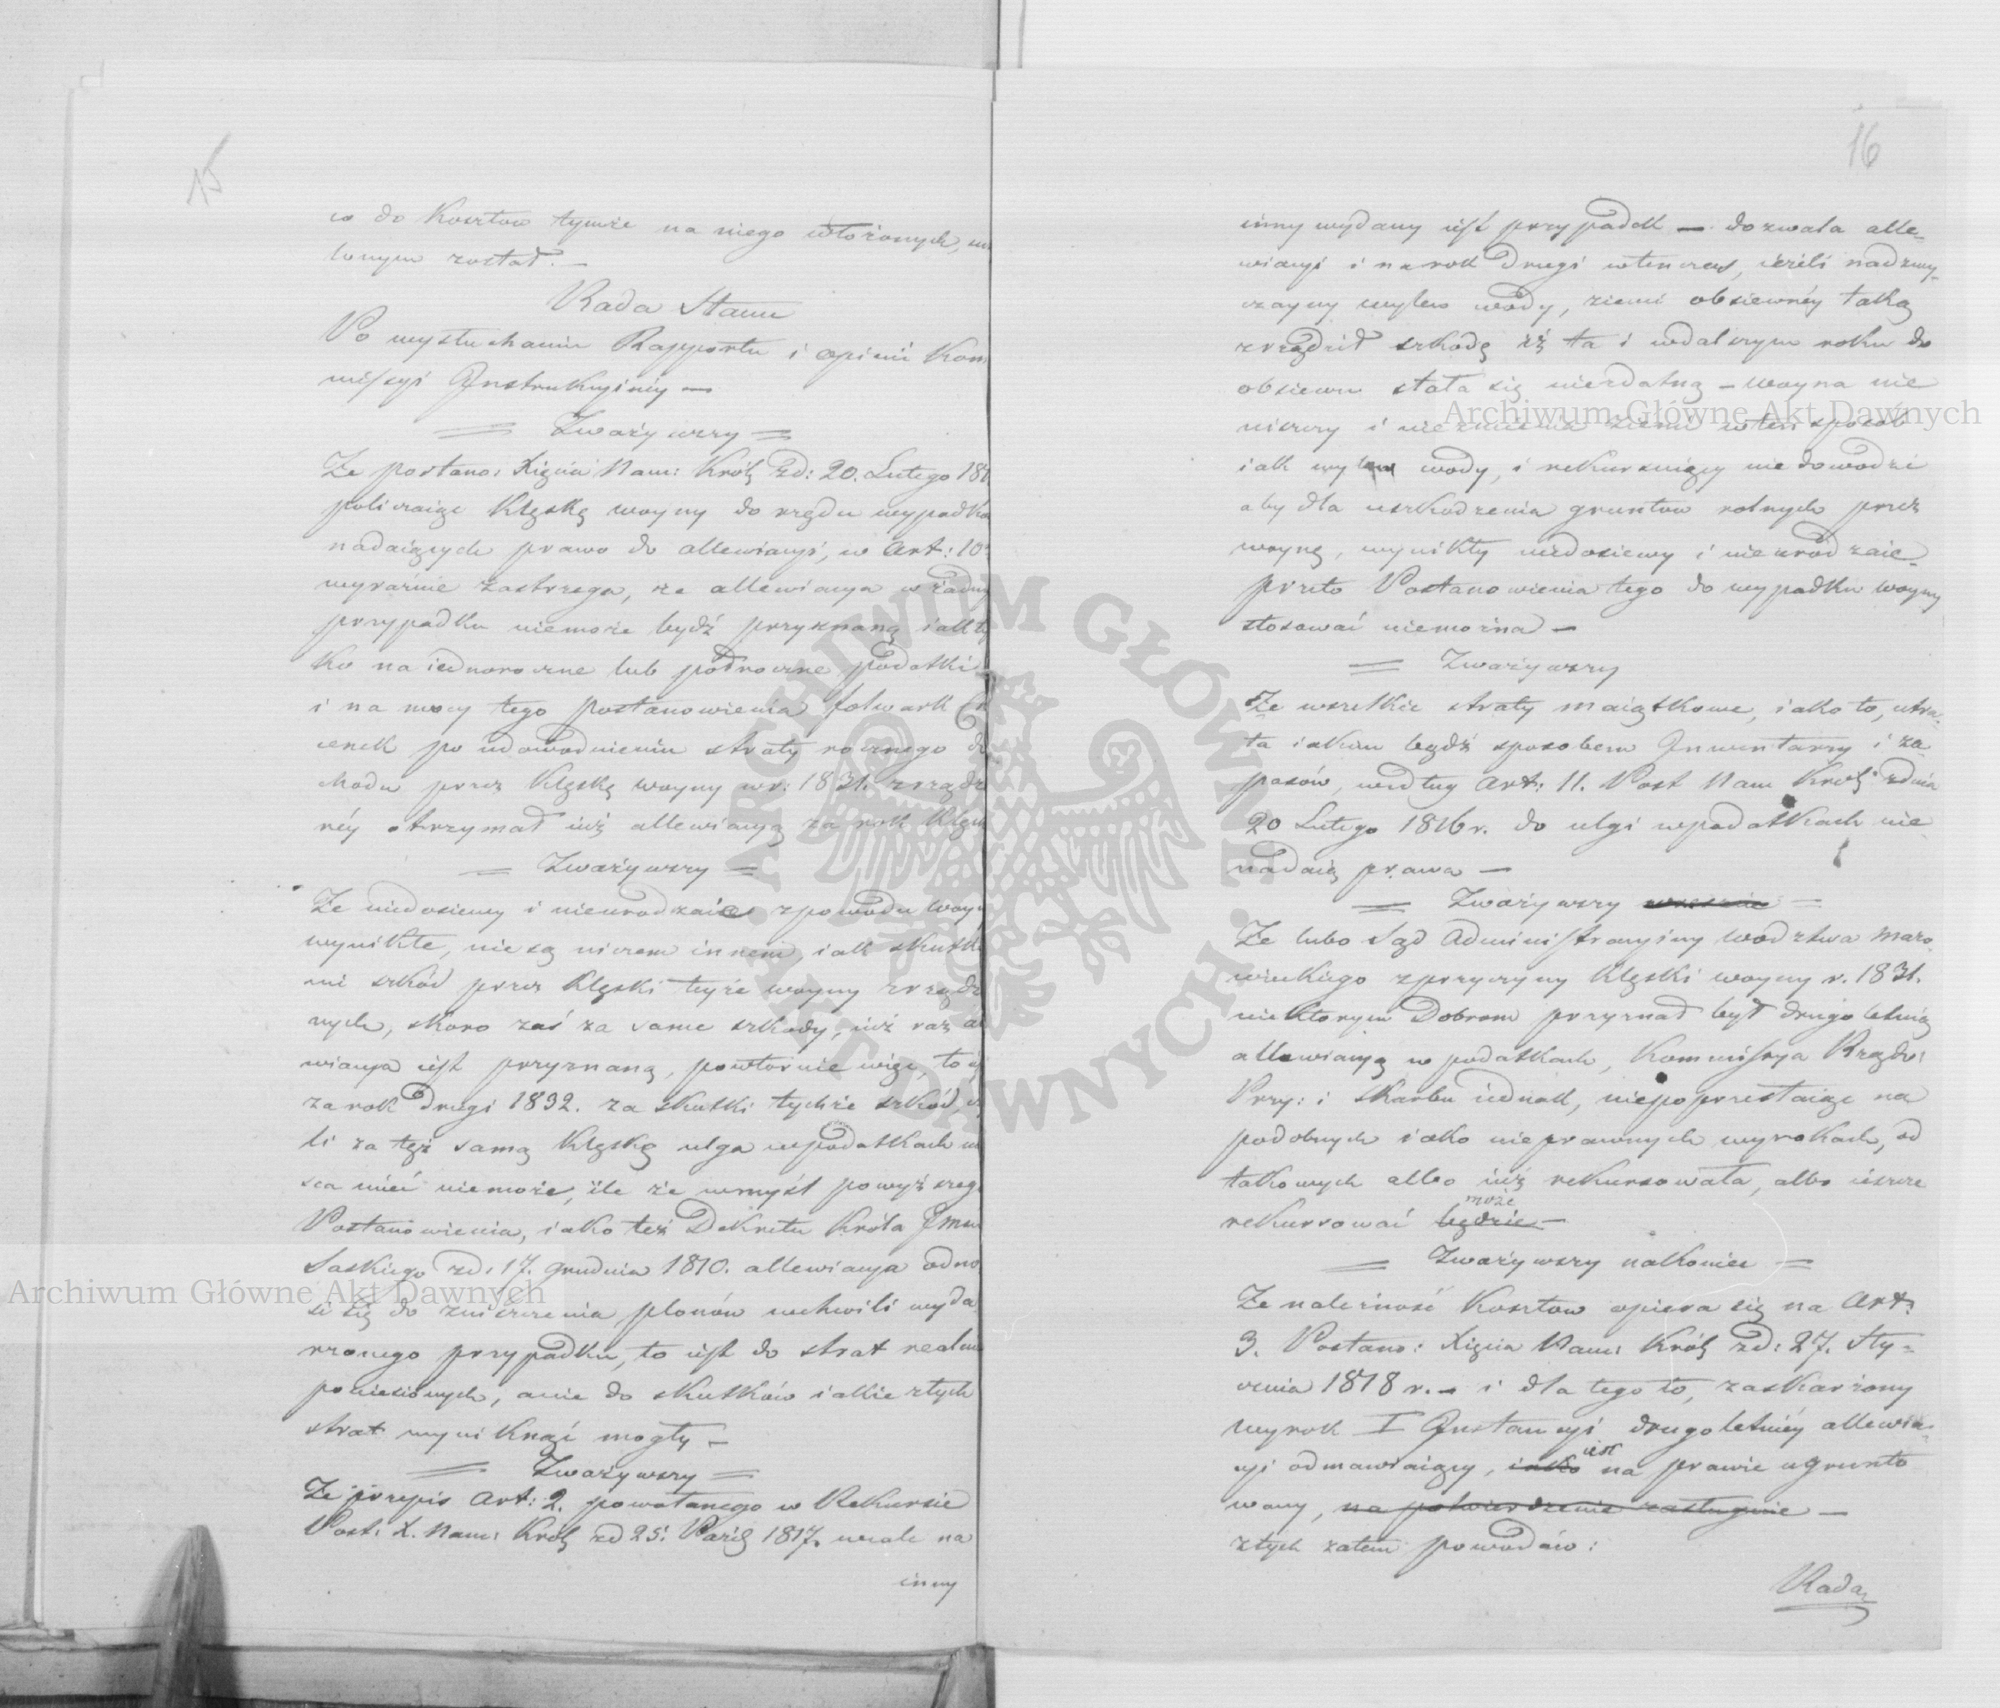 15
co do Kosztow tymże na niego włożonych, uw
lonym został. —
Rada Stanu
Po wysłuchaniu Rapportu i opinii Kom
missyi Instrukcyinéy —
= Zważywszy =
Że postano: Xięcia Nam: Król: zd: 20. Lutego 181
policzaiąc Klęskę woyny do rzędu wypadko
nadaiących prawo do allewiacyi, w Art: 10
wyraźnie zastrzega, że allewiacya w żadny
przypadku niemoże bydź przyznaną iak ty
ko na iednoroczne lub półroczne podatki
i na mocy tego postanowienia folwark
cenek po udowodnieniu straty rocznego do
chodu przez Klęskę woyny w r: 1831. zrządzo
néy otrzymał iuż allewiacyą za rok
= Zważywszy =
Że niedosiewy i nieurodzaie z powodu woyn
wynikłe, nie są niczem innem iak skutka
mi szkód przez Klęski teyże woyny zrządzo
nych, skoro zaś za same szkody, iuż raz al
wiacya iest przyznaną, powtórnie więc, to i
za rok drugi 1832. za skutki tychże szkód, cz
li za też samą Klęskę ulga w podatkach m
sca mieć niemoże, ile że w myśl powyższeg
Postanowienia, iako też Dekretu Króla Jmci
Saskiego zd: 17. grudnia 1810. allewiacya odno
si się do zniszczenia plonów w chwili wyda
rzonego przypadku, to iest do strat realnie
poniesionych, a nie do skutków iakie z tych
strat wyniknąć mogły —
= Zważywszy =
Że przepis Art: 2. powołanego w Rekursie
Post: X. Nam: Król: zd 25. Paźdz: 1817. wcale na
inny
16
inny wydany iest przypadek — dozwala alle-
wiacyi i na rok drugi wtenczas, ieżeli nadzwy-
czayny wylew wody, ziemi obsiewnéy taką
zrządził szkodę iż ta i w dalszym roku do
obsiewu stała się niezdatną — woyna nie
niszczy i nie zmienia ziemi w ten sposób
iak wylew wody, i rekursuiący nie dowodzi
aby dla uszkodzenia gruntow rolnych przez
woynę, wynikły niedosiewy i nieurodzaie —
przeto Postanowienia tego do wypadku woyny
stosować niemożna —
= Zważywszy
Że wszelkie straty maiątkowe, iako to, utra-
ta iakim bądź sposobem Inwentarzy i za-
pasów, według Art: 11. Post Nam Król: z dnia
20 Lutego 1816 r. do ulgi w podatkach nie
nadaią prawa —
= Zważywszy =
Że lubo Sąd Administracyiny Wodztwa Mazo-
wieckiego z przyczyny Klęski woyny r. 1831.
niektorym Dobrom przyznał był drugoletnią
allewiacyą w podatkach, Kommissya Rządo:
Przy: i Skarbu iednak, niepoprzestaiąc na
podobnych iako nieprawnych wyrokach, od
takowych albo iuż rekursowała, albo ieszcze
może
rekursować będzie —
= Zważywszy nakoniec =
Że należność Kosztow opiera się na Art:
3. Postano: Xięcia Nam: Król: zd: 27. Sty-
cznia 1818 r. — i dla tego to, zaskarżony
wyrok I Instancyi drugoletniéy allewia-
iest
cyi odmawiaiący, iako na prawie ugrunto
wany, na potwierdzenie zasługuie —
z tych zatem powodów:
Rada
Archiwum Główne Akt Dawnych
Archiwum Główne Akt Dawnych
ARCHIWUM GŁÓWNE AKT DAWNYCH